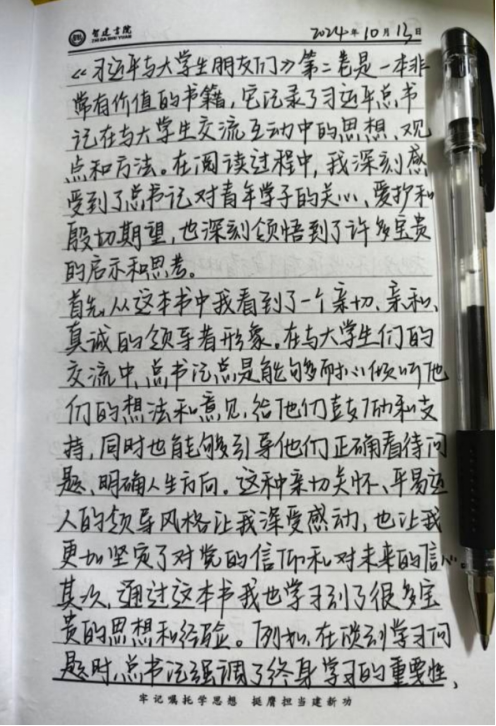 智建书院
ZHI JIAN SHU YUAN
2024年10月13日
《习近平与大学生朋友们》第二卷是一本非
常有价值的书籍，它记录了习近平总书
记在与大学生交流互动中的思想、观
点和方法。在阅读过程中，我深刻感
受到了总书记对青年学子的关心、爱护和
殷切期望，也深刻领悟到了许多宝贵
的启示和思考。
首先，从这本书中我看到了一个亲切、亲和、
真诚的领导者形象。在与大学生们的
交流中，总书记总是能够耐心倾听他
们的想法和意见，给他们鼓励和支
持，同时也能够引导他们正确看待问
题、明确人生方向。这种亲切关怀、平易近
人的领导风格让我深受感动，也让我
更加坚定了对党的信仰和对未来的信心。
其次，通过这本书我也学习到了很多宝
贵的思想和经验。例如，在谈到学习问
题时，总书记强调了终身学习的重要性，
牢记嘱托学思想 挺膺担当建新功